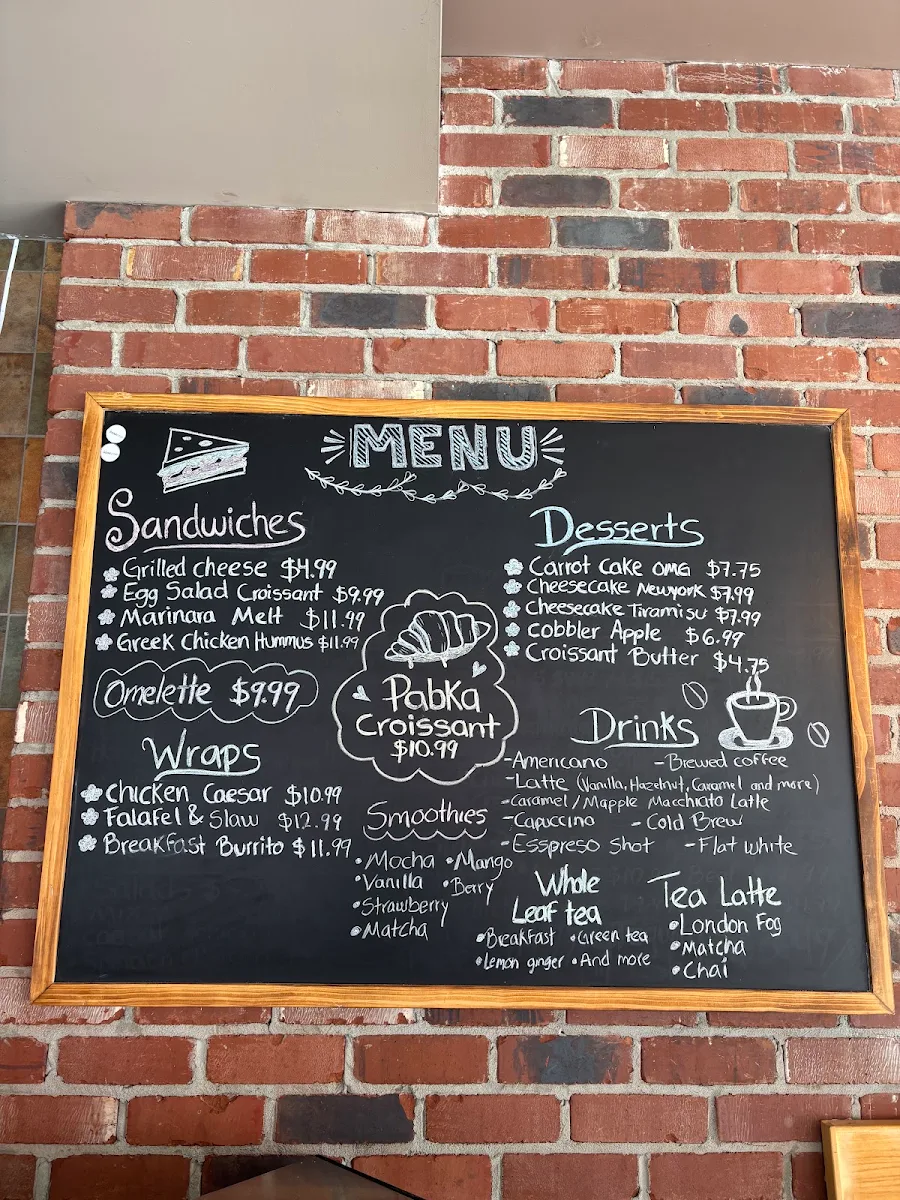 MENU
Sandwiches
Grilled cheese $4.99
Egg Salad Croissant $9.99
Marinara Melt $11.99
Greek Chicken Hummus $11.99
Omelette $9.99
Wraps
Chicken Caesar $10.99
Falafel & Slaw $12.99
Breakfast Burrito $11.99
Pabka
Croissant
$10.99
Smoothies
• Mocha • Mango
• Vanilla • Berry
• Strawberry
• Matcha
Desserts
Carrot Cake OMG $7.75
Cheesecake Newyork $7.99
Cheesecake Tiramisu $7.99
Cobbler Apple $6.99
Croissant Butter $4.75
Drinks
-Americano -Brewed coffee
-Latte (Vanilla, Hazelnut, Caramel and more)
-Caramel/Mapple Macchiato Latte
-Capuccino -Cold Brew
-Esspreso Shot -Flat white
Whole
Leaf tea
• Breakfast • Green tea
• Lemon ginger • And more
Tea Latte
• London Fog
• Matcha
• Chai